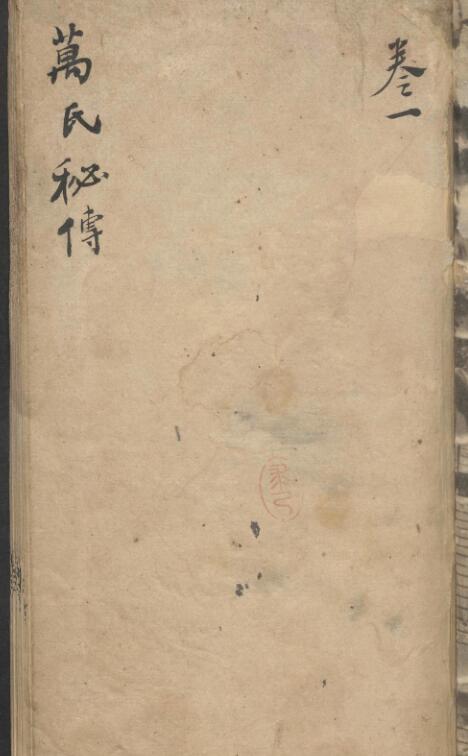 卷一
萬氏秘傳